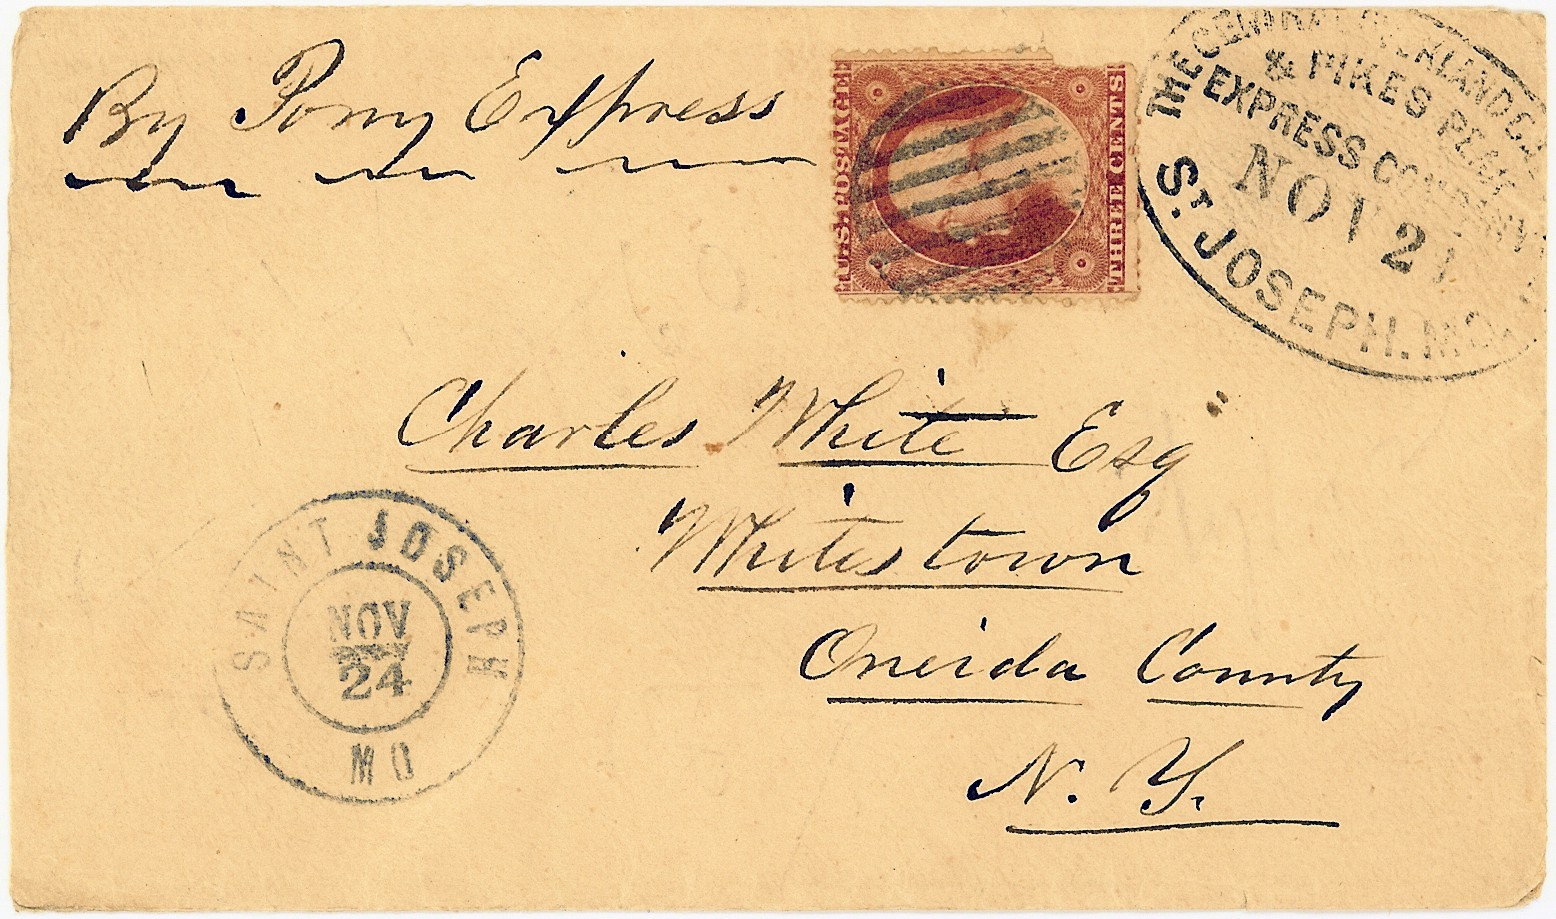 By Pony Express
U.S. POSTAGE
THREE CENTS
THE CENTRAL OVERLAND CA
& PIKES PEAK
EXPRESS COMPANY
NOV 2
ST. JOSEPH. MO.
Charles White Esq
Whitestown
Oneida County
N. Y.
SAINT JOSEPH
NOV
24
MO